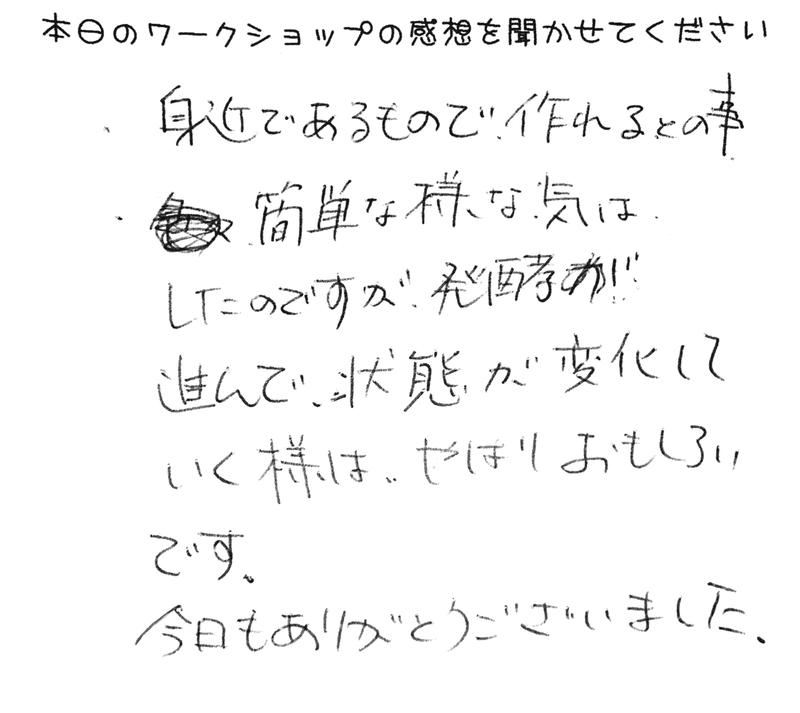 本日のワークショップの感想を聞かせてください
・身近であるもので、作れるとの事
・簡単な様な気は
したのですが、発酵が
進んで、状態が変化して
いく様は、やはりおもしろい
です。
今日もありがとうございました。